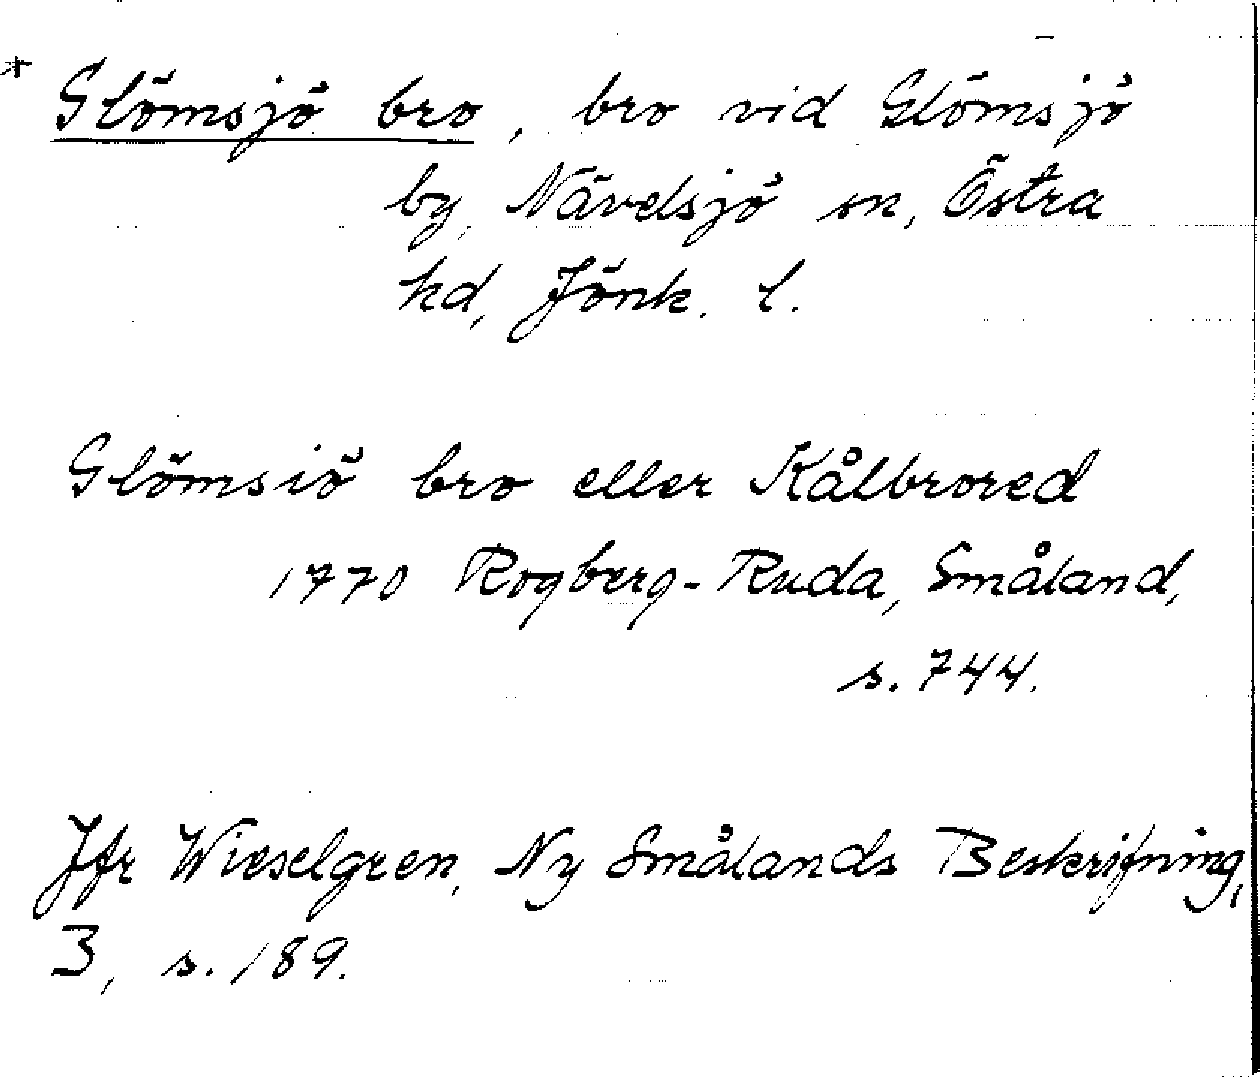 * Glömsjö bro, bro vid Glömsjö
by, Nävelsjö sn, Östra
hd, Jönk. l.
Glömsiö bro eller Kålbrored
1770 Rogberg-Ruda, Småland,
s. 744.
Jfr Wieselgren, Ny Smålands Beskrifning,
3, s. 189.